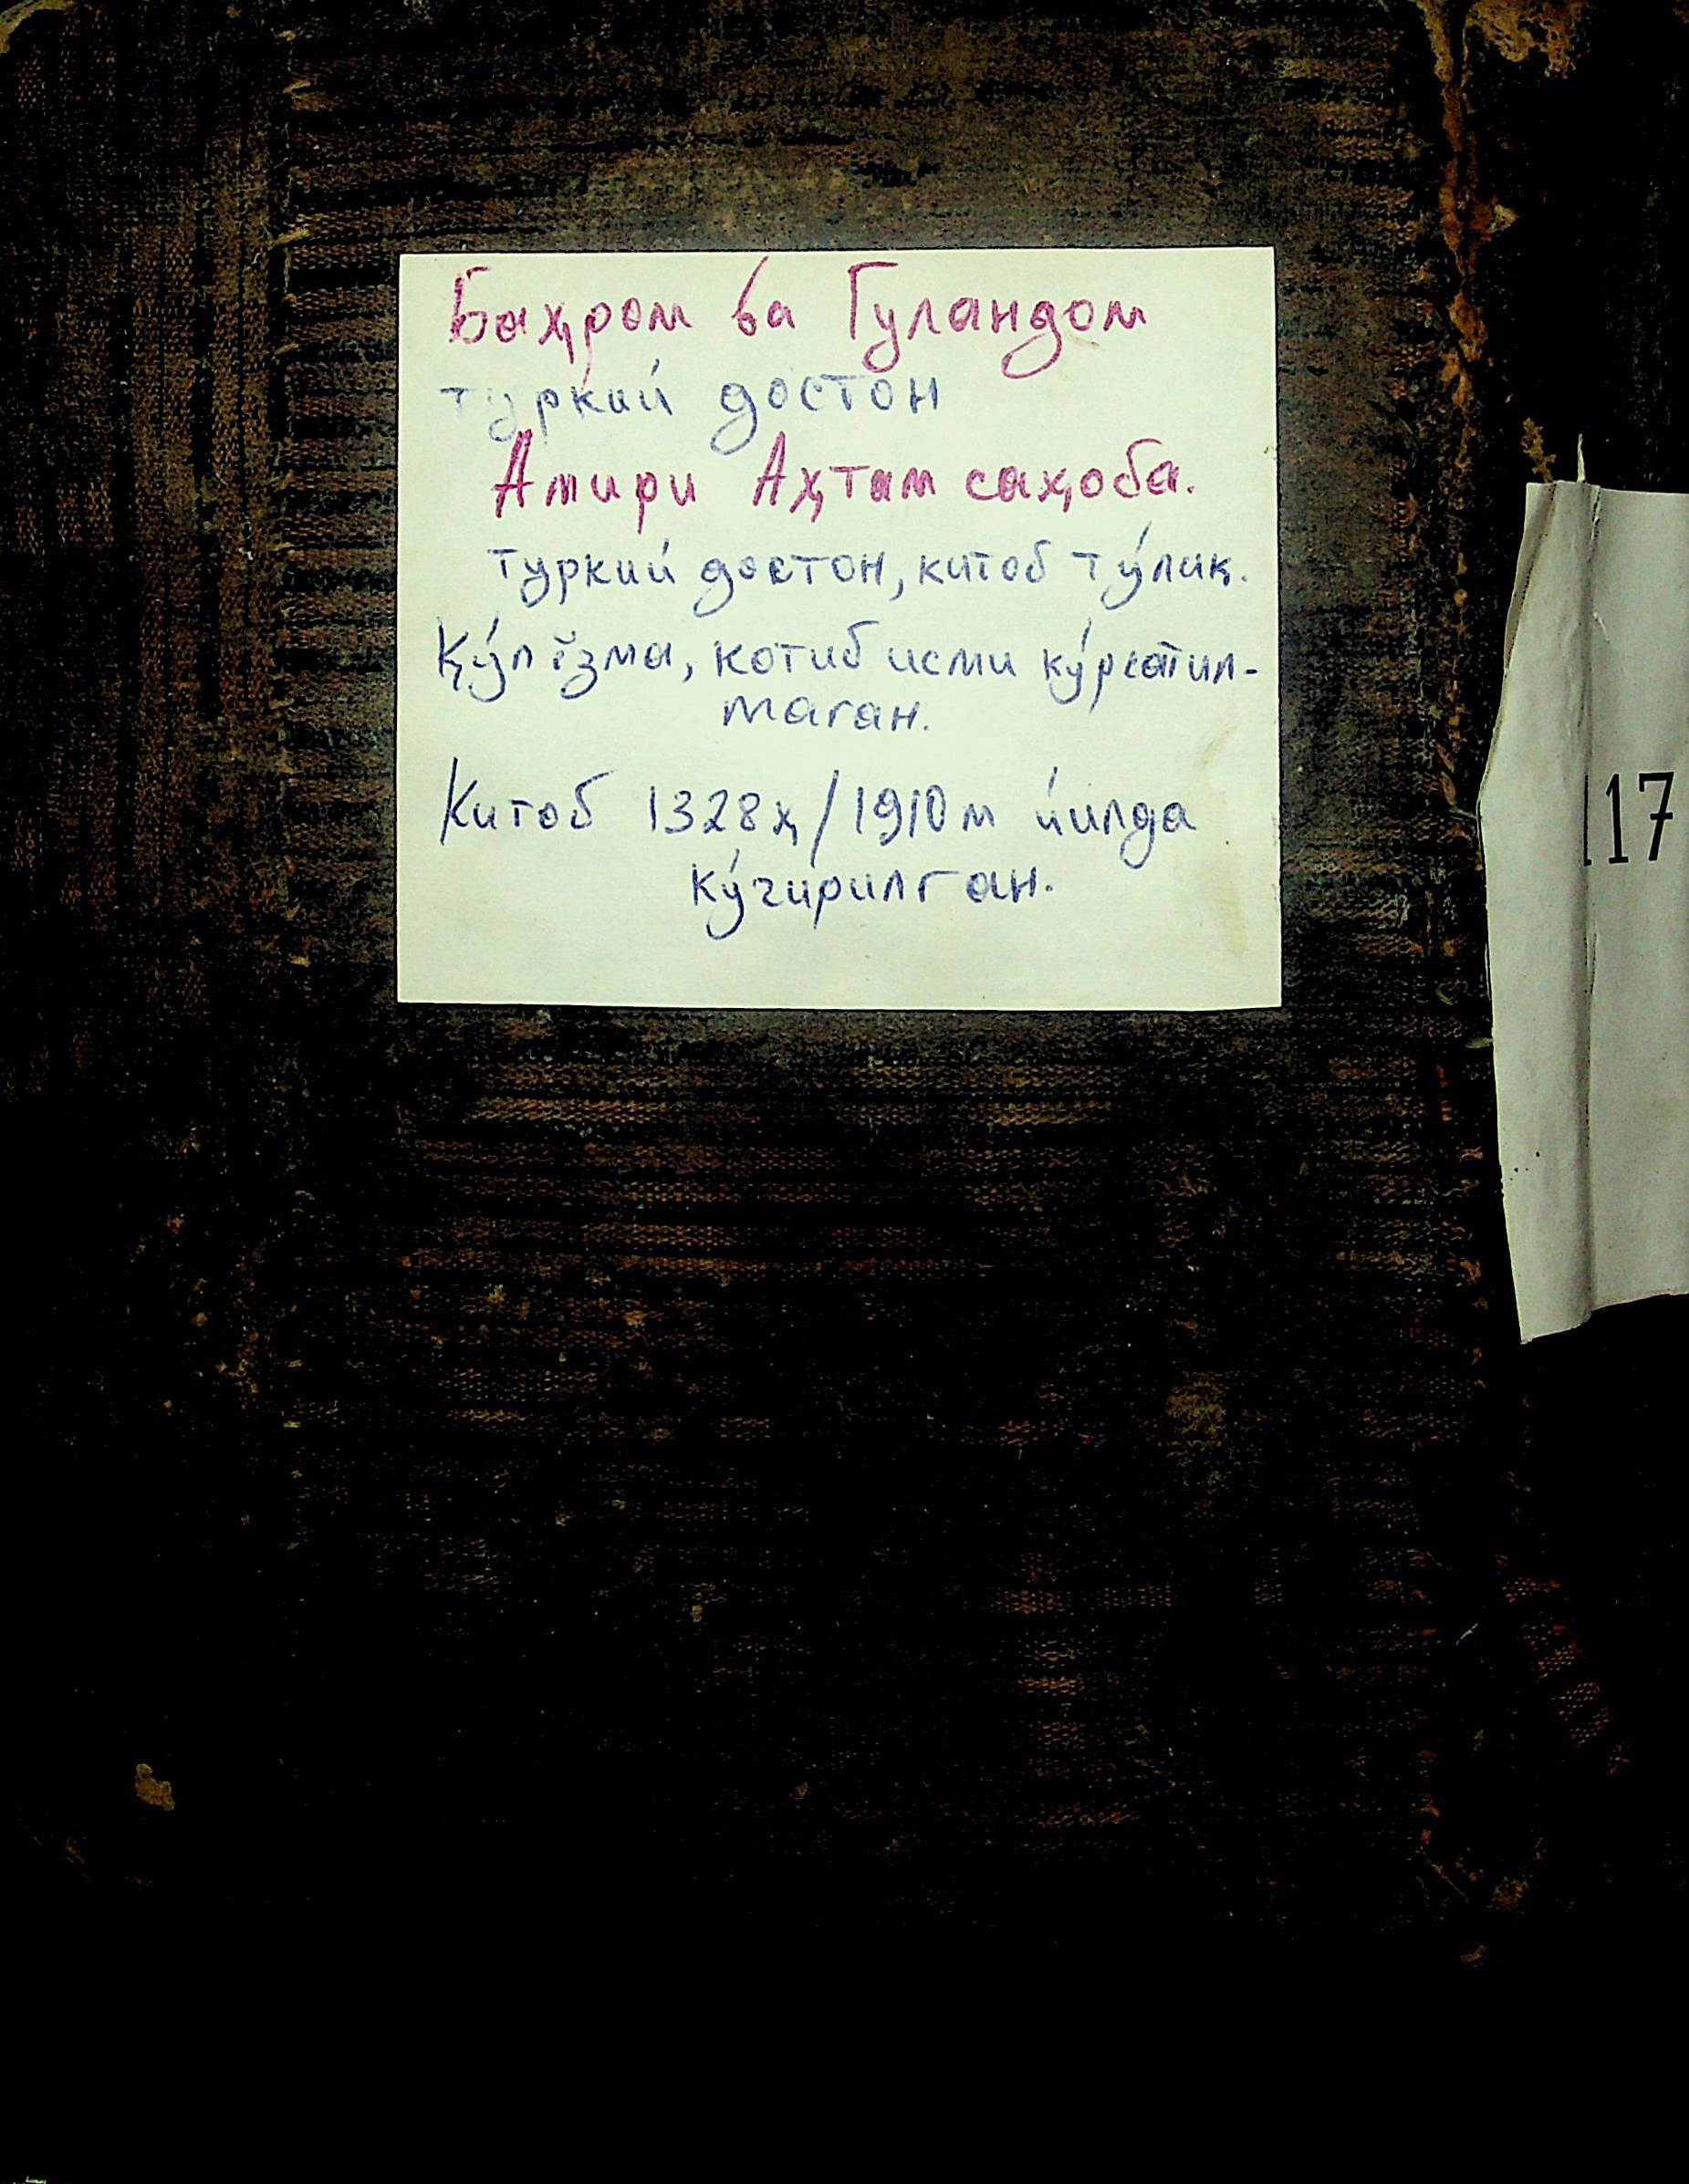 Баҳром ва Гуландом
туркий достон
Амири Аҳтам саҳоба.
туркий достон, китоб тўлиқ.
Қўлёзма, котиб исми кўрсатил-
маган.
Китоб 1328ҳ/1910м йилда
кўчирилган.
117